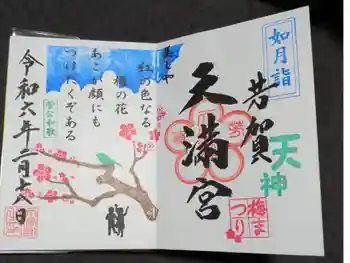 如月詣
芳賀
天満宮
天神
梅まつり
美しや
紅の色なる
梅の花
あこが顔にも
つけたくぞある
菅公和歌
令和六年二月十八日